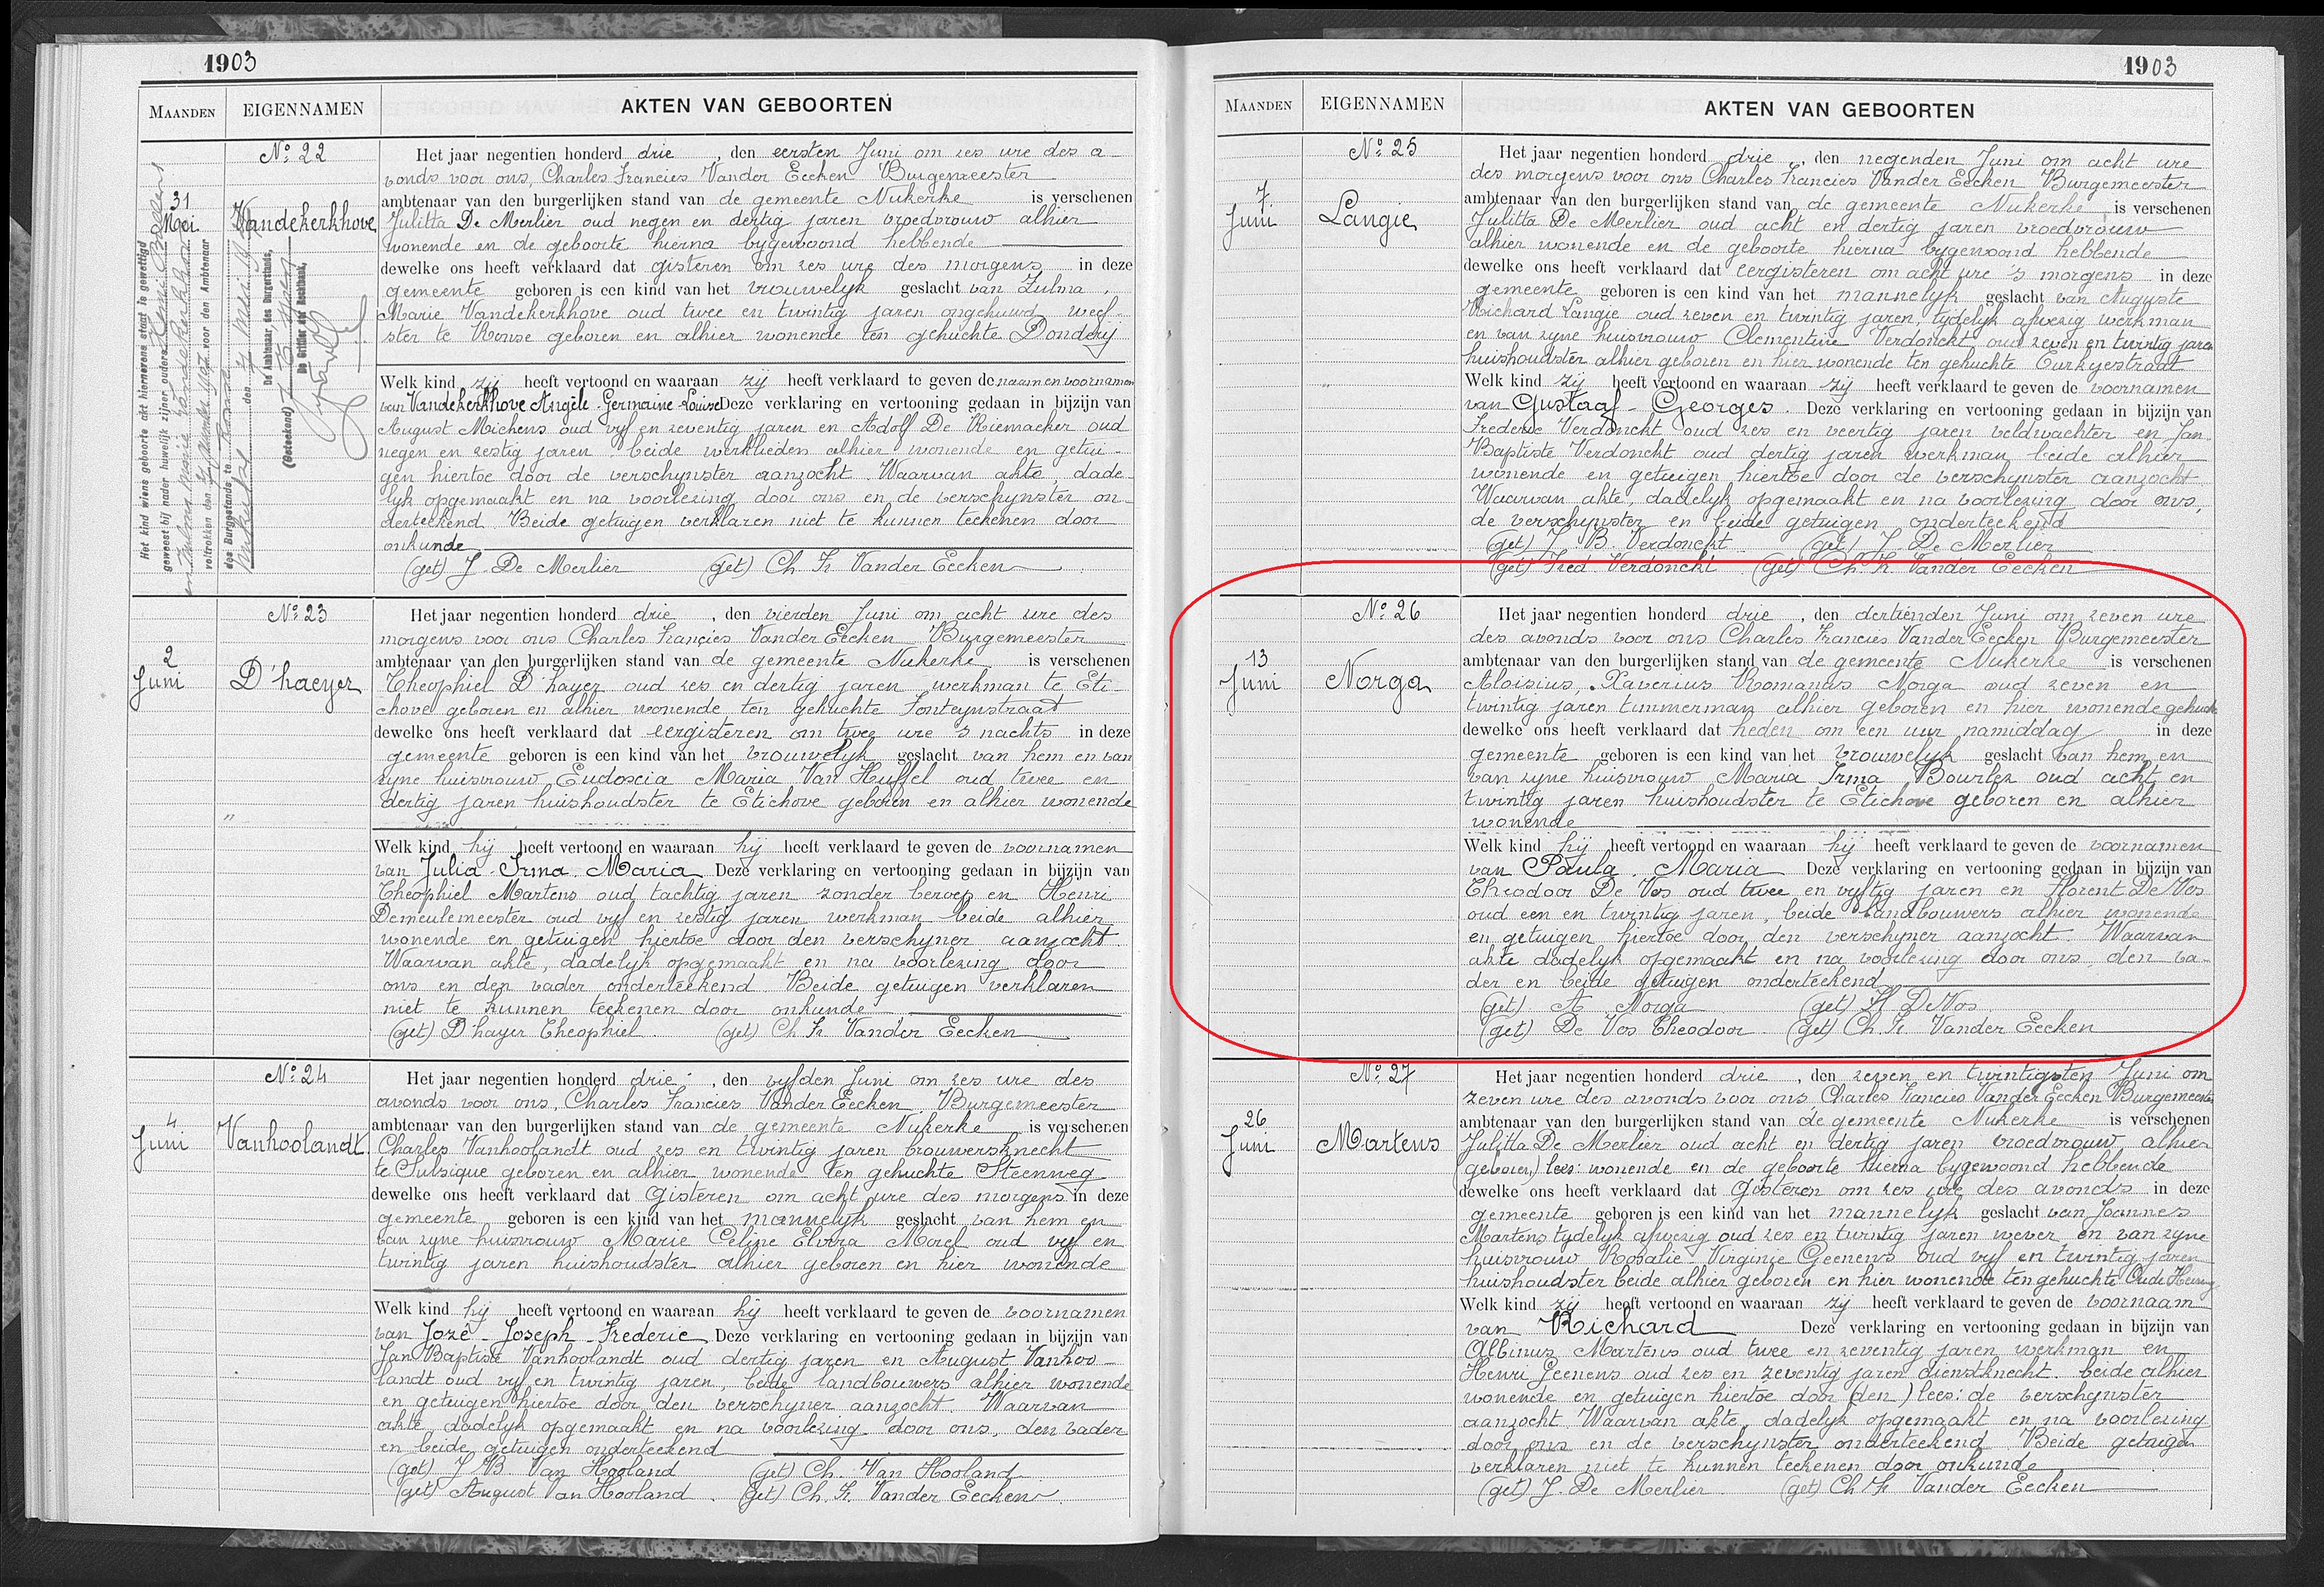 1903
MAANDEN EIGENNAMEN AKTEN VAN GEBOORTEN
No 22
31
Mei
Vandekerkhove
Het jaar negentien honderd drie, den eersten Juni om zes ure des a-
vonds voor ons, Charles Francies Vander Eecken Burgemeester
ambtenaar van den burgerlijken stand van de gemeente Nukerke is verschenen
Julitta De Merlier oud negen en dertig jaren vroedvrouw alhier
wonende en de geboorte hierna bygewoond hebbende
dewelke ons heeft verklaard dat gisteren om zes ure des morgens in deze
gemeente geboren is een kind van het vrouwelyk geslacht van Zulma,
Marie Vandekerkhove oud twee en twintig jaren ongehuwd weef-
ster te Ronse geboren en alhier wonende ten gehuchte Donderij
Welk kind zij heeft vertoond en waaraan zij heeft verklaard te geven de naam en voornamen
van Vandekerkhove Angèle-Germaine-Louise Deze verklaring en vertooning gedaan in bijzijn van
August Michens oud vyf en zeventig jaren en Adolf De Riemacker oud
negen en zestig jaren beide werklieden alhier wonende en getui-
gen hiertoe door de verschynster aanzocht Waarvan akte, dade-
lyk opgemaakt en na voorlezing door ons en de verschynster on-
derteekend. Beide getuigen verklaren niet te kunnen teekenen door
onkunde
(get) J. De Merlier (get) Ch. Fr. Vander Eecken
Het kind wiens geboorte akt hiernevens staat is gewettigd
geweest bij nader huwelijk zijner ouders
Marie Vandekerkhove
voltrokken den voor den Ambtenaar
des Burgerstands te
den
De Ambtenaar des Burgerstands,
De Griffier der Rechtbank,
(Geteekend)
No 23
2
Juni
D'haeyer
Het jaar negentien honderd drie, den vierden Juni om acht ure des
morgens voor ons Charles Francies Vander Eecken Burgemeester
ambtenaar van den burgerlijken stand van de gemeente Nukerke is verschenen
Theophiel D'hayer oud zes en dertig jaren werkman te Eti-
chove geboren en alhier wonende ten gehuchte Fonteynstraat
dewelke ons heeft verklaard dat eergisteren om twee ure 's nachts in deze
gemeente geboren is een kind van het vrouwelyk geslacht van hem en van
zyne huisvrouw Eudoxia Maria Van Huffel oud twee en
dertig jaren huishoudster te Etichove geboren en alhier wonende
Welk kind hij heeft vertoond en waaraan hij heeft verklaard te geven de voornamen
van Julia-Irma-Maria Deze verklaring en vertooning gedaan in bijzijn van
Theophiel Martens oud tachtig jaren zonder beroep en Henri
Demeulemeester oud vyf en zestig jaren werkman beide alhier
wonende en getuigen hiertoe door den verschyner aanzocht.
Waarvan akte, dadelyk opgemaakt en na voorlezing door
ons en den vader onderteekend. Beide getuigen verklaren
niet te kunnen teekenen door onkunde
(get) D'hayer Theophiel (get) Ch Fr. Vander Eecken
No 24
4
Juni
Vanhoolandt
Het jaar negentien honderd drie, den vyfden Juni om zes ure des
avonds voor ons, Charles Francies Vander Eecken, Burgemeester
ambtenaar van den burgerlijken stand van de gemeente Nukerke is verschenen
Charles Vanhoolandt oud zes en twintig jaren brouwersknecht
te Sulsique geboren en alhier wonende ten gehuchte Steenweg
dewelke ons heeft verklaard dat Gisteren om acht ure des morgens in deze
gemeente geboren is een kind van het mannelyk geslacht van hem en
van zyne huisvrouw Marie Celine Elvira Morel oud vyf en
twintig jaren huishoudster alhier geboren en hier wonende
Welk kind hij heeft vertoond en waaraan hij heeft verklaard te geven de voornamen
van Jozé-Joseph-Frederic Deze verklaring en vertooning gedaan in bijzijn van
Jan Baptiste Vanhoolandt oud dertig jaren en August Vanhoo-
landt oud vyf en twintig jaren, beide landbouwers alhier wonende
en getuigen hiertoe door den verschyner aanzocht. Waarvan
akte dadelyk opgemaakt en na voorlezing door ons, den vader
en beide getuigen onderteekend
(get) J B Van Hooland (get) Ch. Van Hooland
(get) August Van Hooland. (get) Ch. Fr. Vander Eecken.
1903
MAANDEN EIGENNAMEN AKTEN VAN GEBOORTEN
No 25
7
Juni
Langie
Het jaar negentien honderd drie, den negenden Juni om acht ure
des morgens voor ons Charles Francies Vander Eecken Burgemeester
ambtenaar van den burgerlijken stand van de gemeente Nukerke is verschenen
Julitta De Merlier oud acht en dertig jaren vroedvrouw
alhier wonende en de geboorte hierna bygewoond hebbende
dewelke ons heeft verklaard dat eergisteren om acht ure 's morgens in deze
gemeente geboren is een kind van het mannelyk geslacht van Auguste
Richard Langie oud zeven en twintig jaren, tydelyk afwezig werkman
en van zyne huisvrouw Clementine Verdonckt oud zeven en twintig jaren
huishoudster alhier geboren en hier wonende ten gehuchte Turkyestraat
Welk kind zij heeft vertoond en waaraan zij heeft verklaard te geven de voornamen
van Gustaaf-Georges. Deze verklaring en vertooning gedaan in bijzijn van
Frederic Verdonckt oud zes en veertig jaren veldwachter en Jan-
Baptiste Verdonckt oud dertig jaren werkman beide alhier
wonende en getuigen hiertoe door de verschynster aanzocht.
Waarvan akte, dadelyk opgemaakt en na voorlezing door ons,
de verschynster en beide getuigen onderteekend
(get) J. B. Verdonckt (get) J. De Merlier
(get) Fred. Verdonckt (get) Ch. Fr. Vander Eecken
No 26
13
Juni
Norga
Het jaar negentien honderd drie, den dertienden Juni om zeven ure
des avonds voor ons Charles Francies Vander Eecken Burgemeester
ambtenaar van den burgerlijken stand van de gemeente Nukerke is verschenen
Aloisius, Xaverius Romanus Norga oud zeven en
twintig jaren timmerman alhier geboren en hier wonende gehucht
dewelke ons heeft verklaard dat heden om een uur namiddag in deze
gemeente geboren is een kind van het vrouwelyk geslacht van hem en
van zyne huisvrouw Maria Irma Bourlez oud acht en
twintig jaren huishoudster te Etichove geboren en alhier
wonende
Welk kind hij heeft vertoond en waaraan hij heeft verklaard te geven de voornamen
van Paula. Maria Deze verklaring en vertooning gedaan in bijzijn van
Theodoor De Vos oud twee en vyftig jaren en Florent De Vos
oud een en twintig jaren, beide landbouwers alhier wonende
en getuigen hiertoe door den verschyner aanzocht. Waarvan
akte dadelyk opgemaakt en na voorlezing door ons, den va-
der en beide getuigen onderteekend
(get) A Norga (get) Fl De Vos
(get) De Vos Theodoor (get) Ch. Fr. Vander Eecken
No 27
26
Juni
Martens
Het jaar negentien honderd drie, den zeven en twintigsten Juni om
zeven ure des avonds voor ons Charles Francies Vander Eecken Burgemeester
ambtenaar van den burgerlijken stand van de gemeente Nukerke is verschenen
Julitta De Merlier oud acht en dertig jaren vroedvrouw alhier
(geboren) lees: wonende en de geboorte hierna bygewoond hebbende
dewelke ons heeft verklaard dat Gisteren om zes ure des avonds in deze
gemeente geboren is een kind van het mannelyk geslacht van Joannes
Martens tydelyk afwezig oud zes en twintig jaren wever en van zyne
huisvrouw Rosalie-Virginie Geenens oud vyf en twintig jaren
huishoudster beide alhier geboren en hier wonende ten gehuchte Oude
Welk kind zij heeft vertoond en waaraan zij heeft verklaard te geven de voornaam
van Richard Deze verklaring en vertooning gedaan in bijzijn van
Albinus Martens oud twee en zeventig jaren werkman en
Henri Geenens oud zes en zeventig jaren dienstknecht. beide alhier
wonende en getuigen hiertoe door (den) lees: de verschynster
aanzocht. Waarvan akte, dadelyk opgemaakt en na voorlezing
door ons en de verschynster onderteekend Beide getuigen
verklaren niet te kunnen teekenen door onkunde
(get) J. De Merlier. (get) Ch Fr Vander Eecken